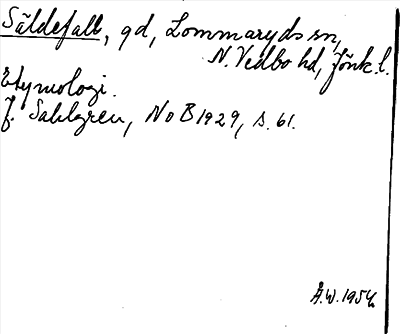 Säldefall, gd, Lommaryds sn,
N. Vedbo hd, Jönk. l.
Etymologi.
J. Sahlgren, NoB 1929, s. 61.
Å.W. 1954.